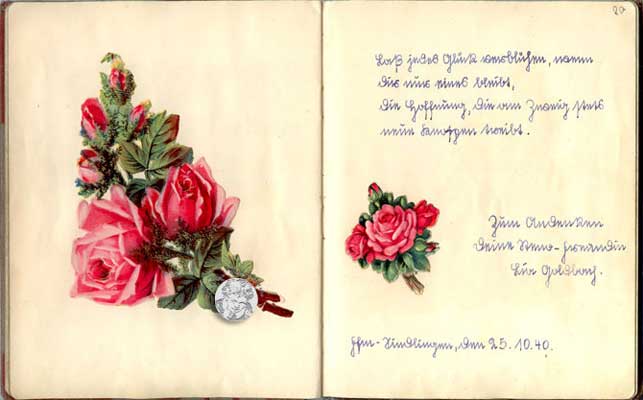 Laß jedes Glück verblühen, wenn
dir nur eines bleibt,
die Hoffnung, die am Zweig stets
neue Knospen treibt.
Zum Andenken
deine Steno-Freundin
Goldbach.
Ffm-Sindlingen, den 25.10.40.